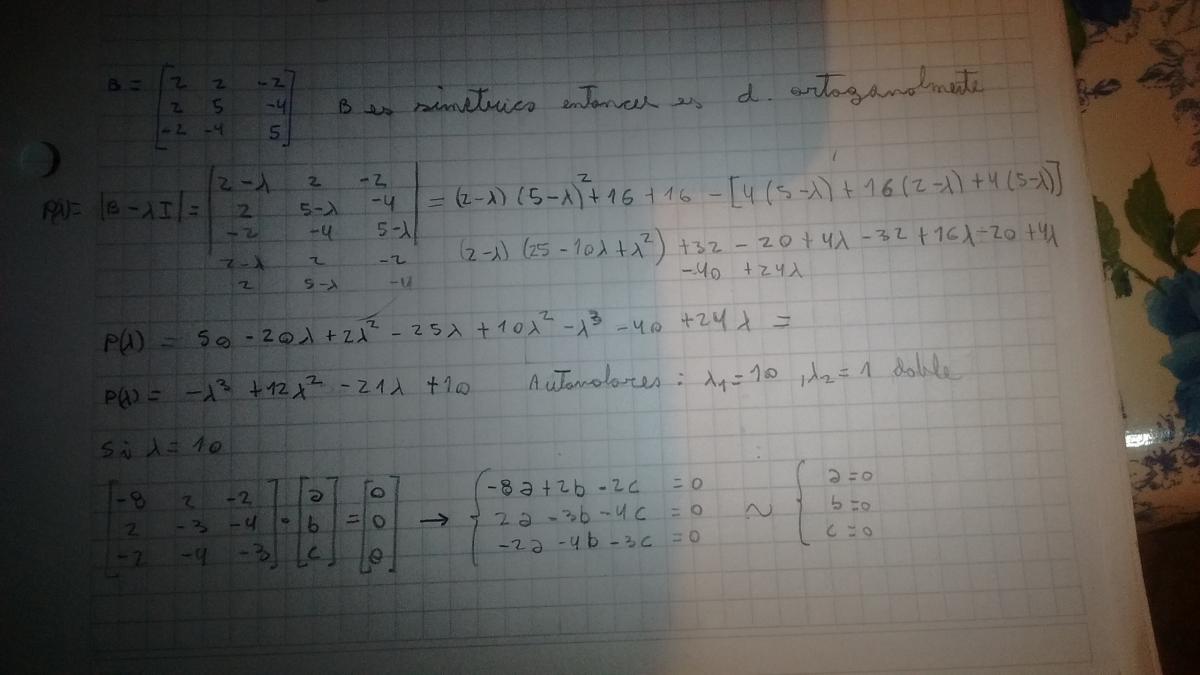 B = [2 2 -2
2 5 -4
-2 -4 5] B es simétrico entonces es d. ortoganolmente
P(λ) = |B - λI| = |2-λ 2 -2
2 5-λ -4
-2 -4 5-λ| = (2-λ)(5-λ)² + 16 + 16 - [4(5-λ) + 16(2-λ) + 4(5-λ)]
2-λ 2 -2
2 5-λ -4
(2-λ)(25 - 10λ + λ²) + 32 - 20 + 4λ - 32 + 16λ - 20 + 4λ
-40 + 24λ
P(λ) = 50 - 20λ + 2λ² - 25λ + 10λ² - λ³ - 40 + 24λ =
P(λ) = -λ³ + 12λ² - 21λ + 10 Autovalores : λ₁ = 10 , λ₂ = 1 doble
Si λ = 10
[-8 2 -2
2 -3 -4
-2 -4 -3] · [a
b
c] = [0
0
0] → { -8a + 2b - 2c = 0
2a - 3b - 4c = 0
-2a - 4b - 3c = 0 ~ { a = 0
b = 0
c = 0